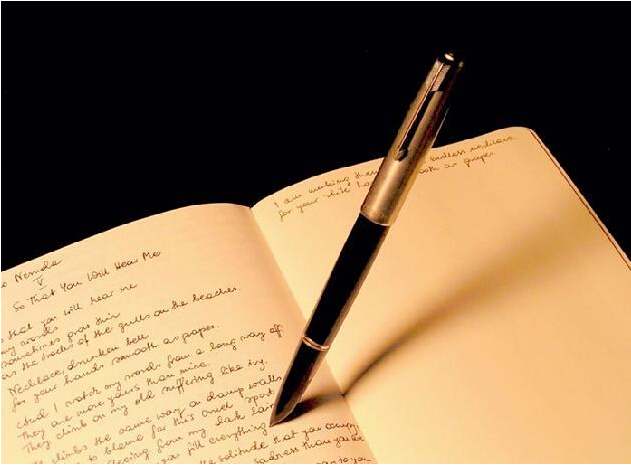 Neruda
V
So That You Will Hear Me
that you will hear me
my words
sometimes grow thin
as the tracks of the gulls on the beaches.
Necklace, drunken bell
for your hands smooth as grapes.
And I watch my words from a long way off.
They are more yours than mine.
They climb on my old suffering like ivy.
climbs the same way on damp walls
to blame for this cruel sport
fleeing from my dark lair
you fill everything
the solitude that you occupy
sadness than you are
to you
I am making them endless necklace
for your white as grapes